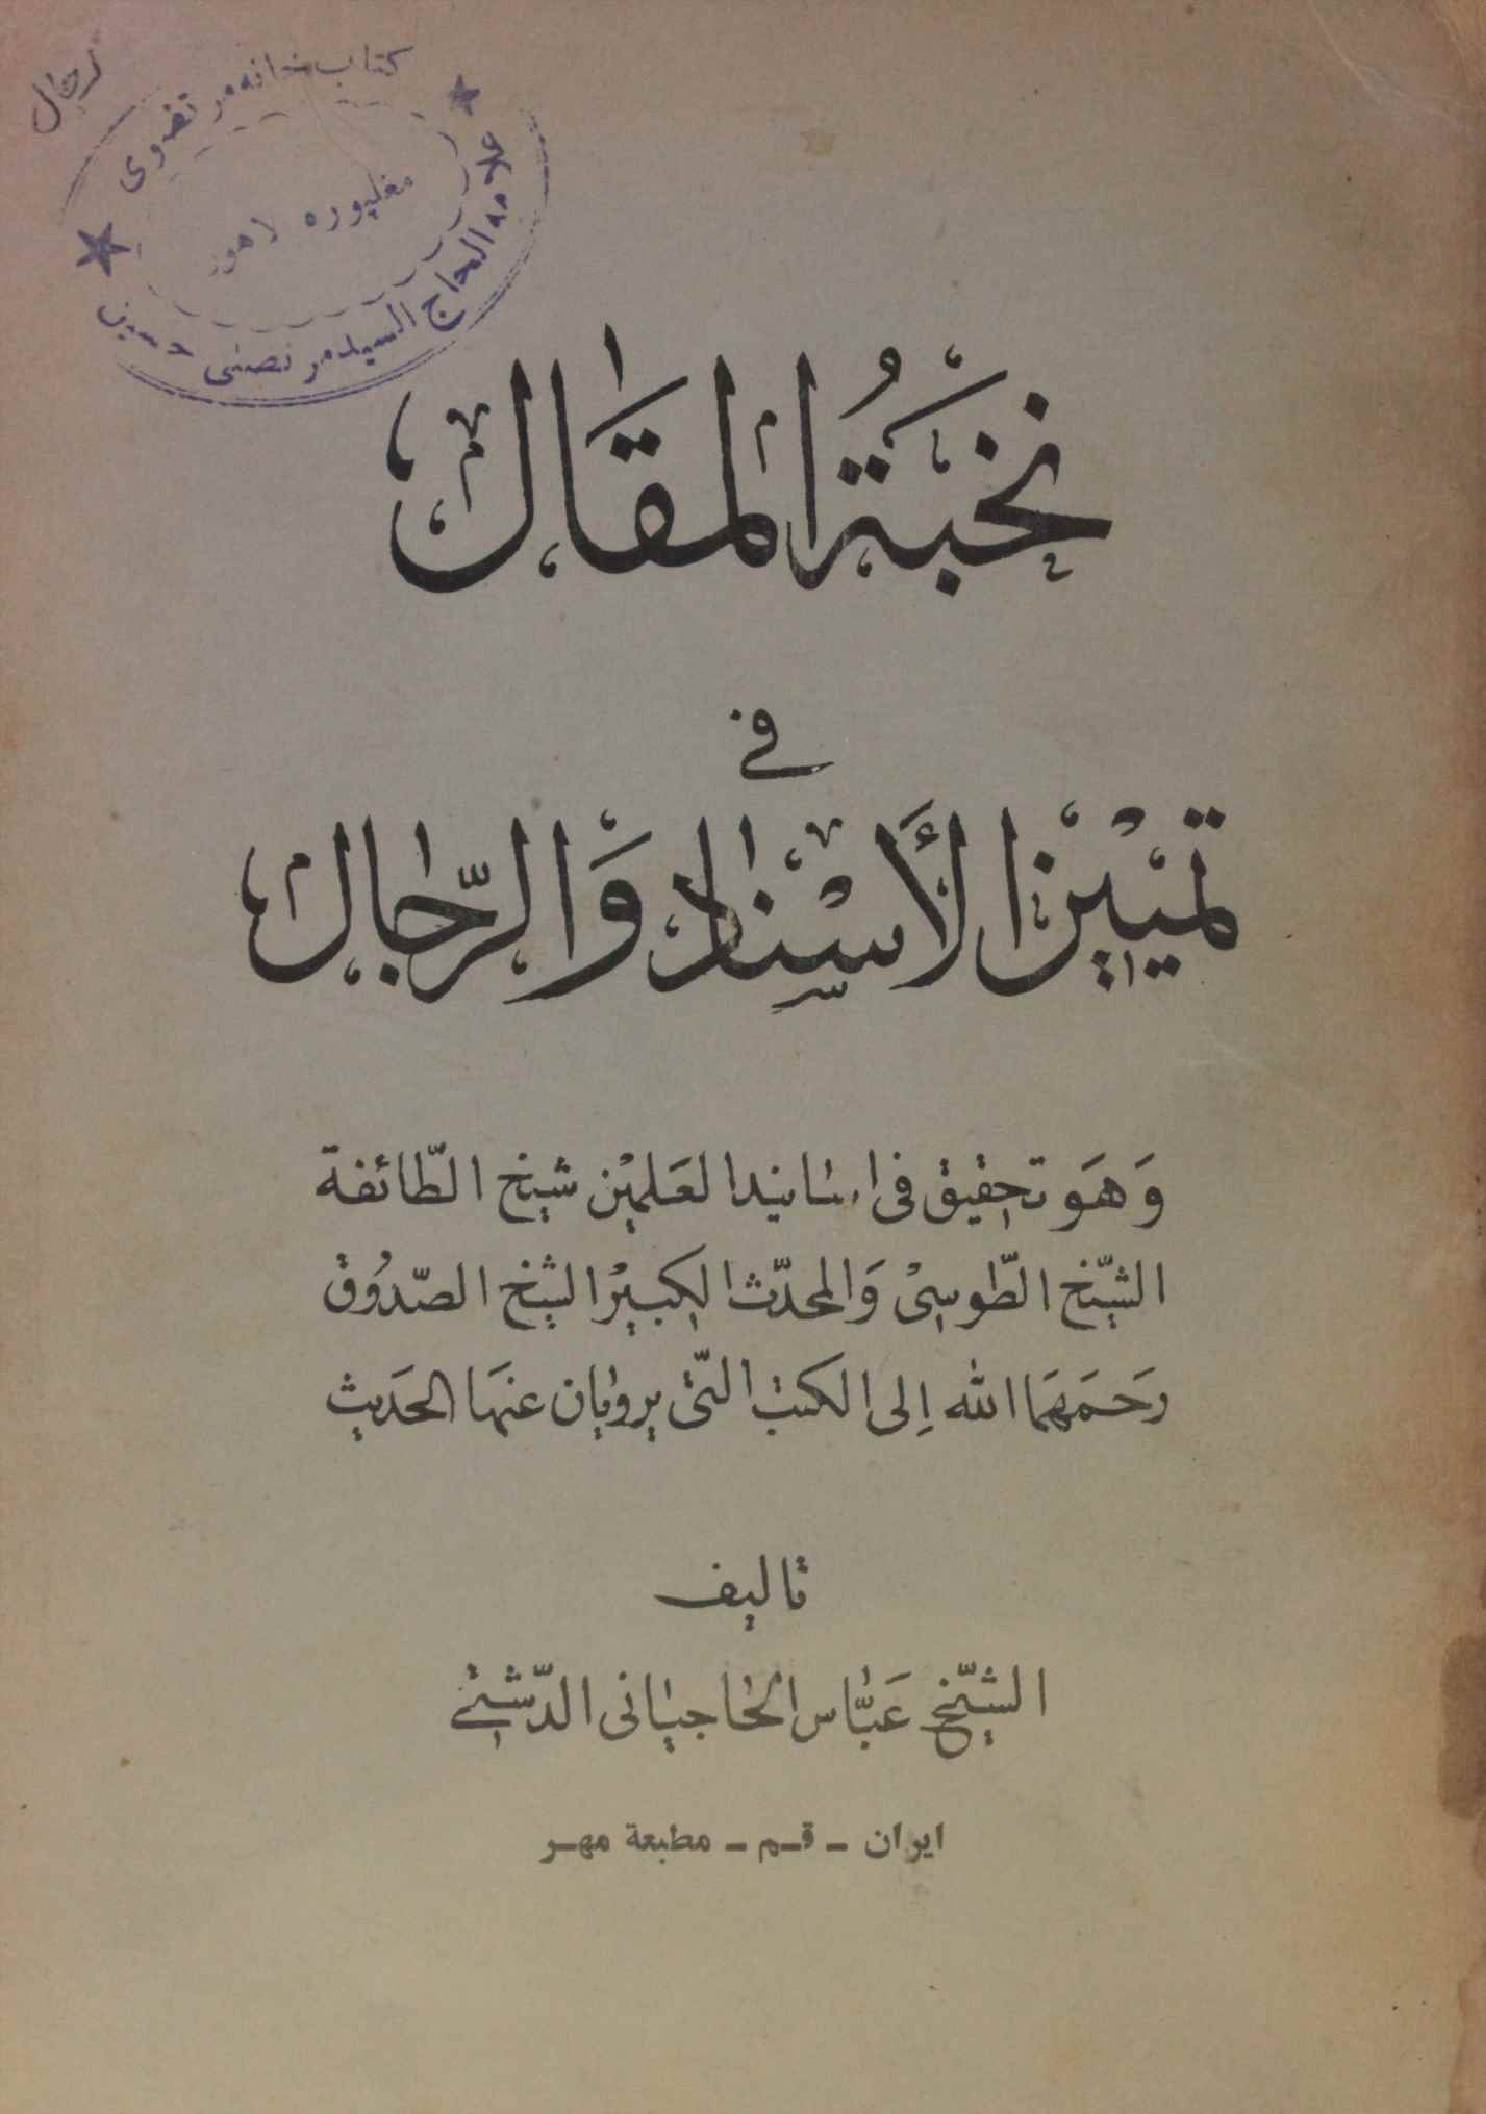 رجال
کتاب خانه مرتضوی
مغلپوره لاهور
علامه الحاج السید مرتضی حسین
نخبَةُ المقَال
في
تمييْز الأَسْناد وَالرّجال
وَهَو تحقيق فى اسانيد العَلميْن شيخ الطّائفة
الشيّخ الطّوسىْ وَالمحدّث الكبيْر الشيخ الصّدُوق
رَحَمَهَما الله إلى الكتب التّى يرويان عنهَا الحَديث
تاليف
الشيّخ عَبّاس الحاجيانى الدّشتي
ايران ـ قـم ـ مطبعة مهـر